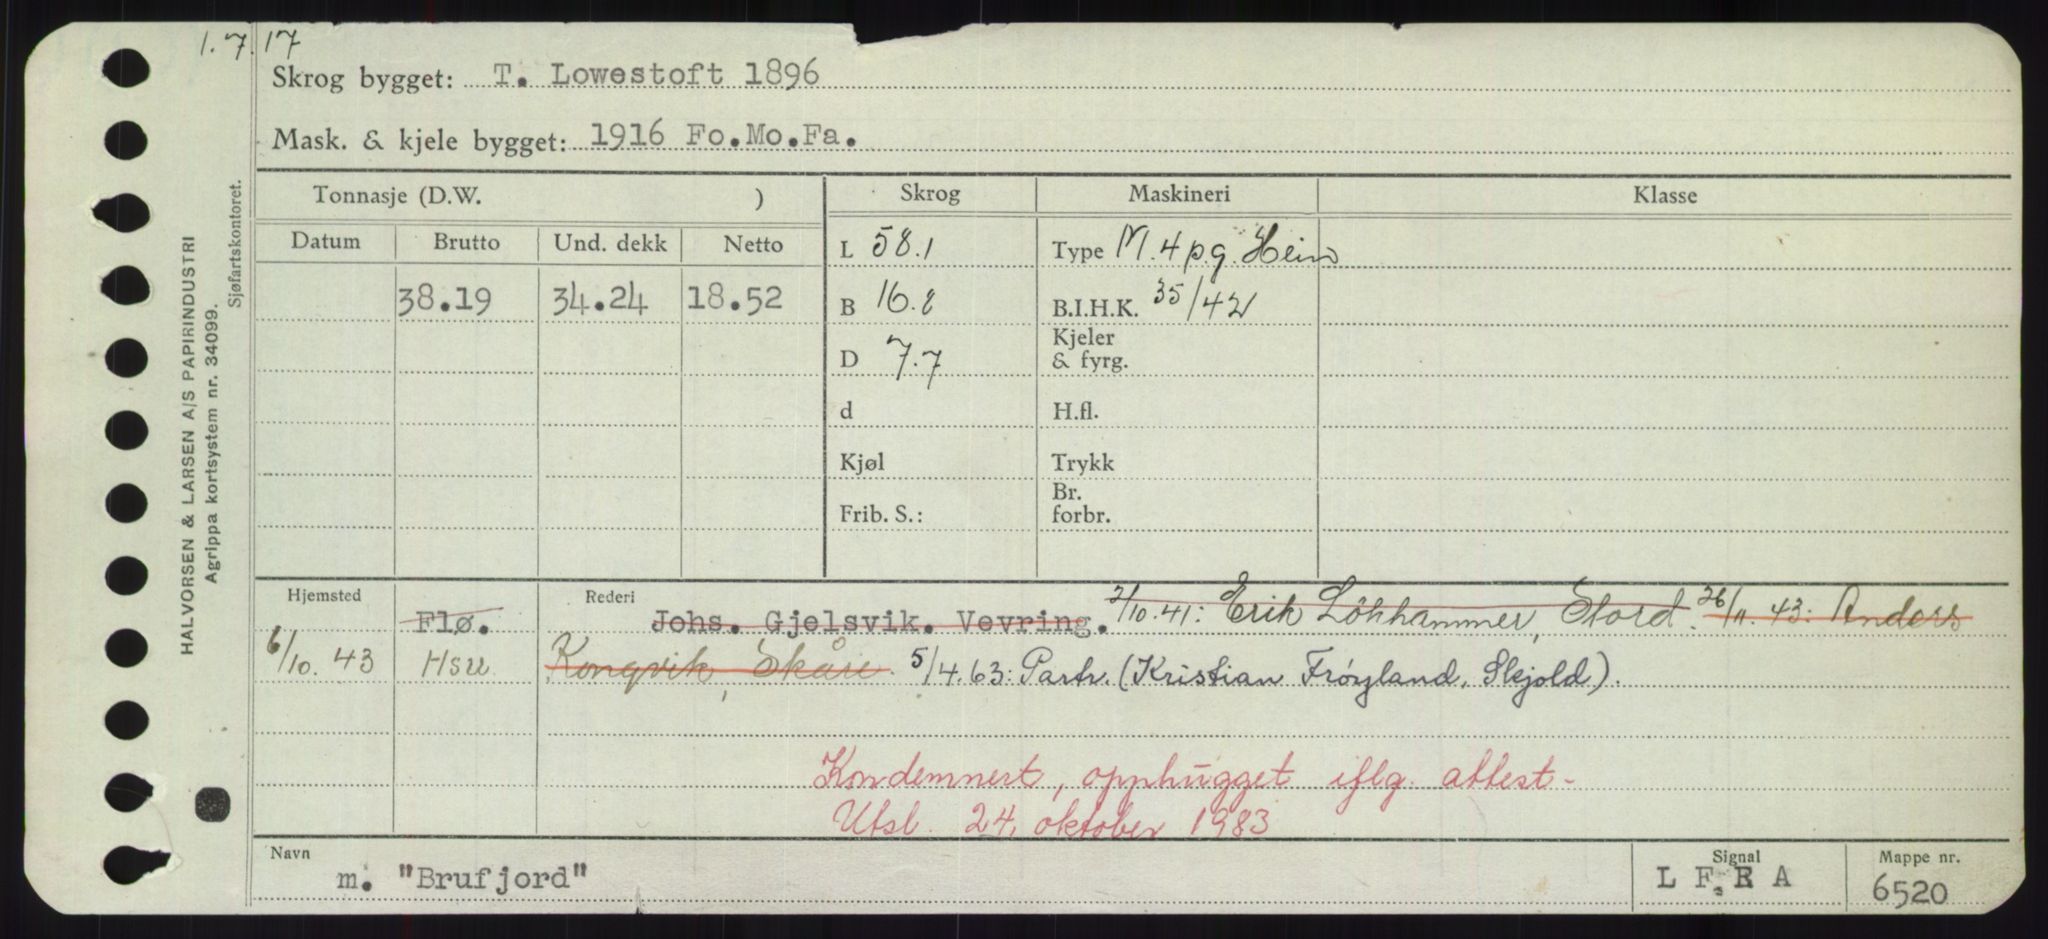 1.7.17
Skrog bygget: T. Lowestoft 1896
Mask. & kjele bygget: 1916 Fo.Mo.Fa.
Tonnasje (D.W. ) Skrog Maskineri Klasse
Datum Brutto Und. dekk Netto L 58.1 Type M. 4 p.g. Hein
38.19 34.24 18.52 B 16.8 B.I.H.K. 35/42
D 7.7 Kjeler & fyrg.
d H.fl.
Kjøl Trykk
Frib. S.: Br. forbr.
Hjemsted Flø. Rederi Johs. Gjelsvik. Vevring. 2/10.41: Erik Lökhammer, Stord. 26/11.43: Anders
6/10.43 Hsu Kongvik, Skåre. 5/4.63: Partr. (Kristian Frøyland, Skjold).
Kondemnert, opphugget iflg. attest-
Utsl. 24. oktober 1983
Navn m. "Brufjord" Signal L F R A Mappe nr. 6520
HALVORSEN & LARSEN A/S PAPIRINDUSTRI
Agrippa kortsystem nr. 34099.
Sjøfartskontoret.